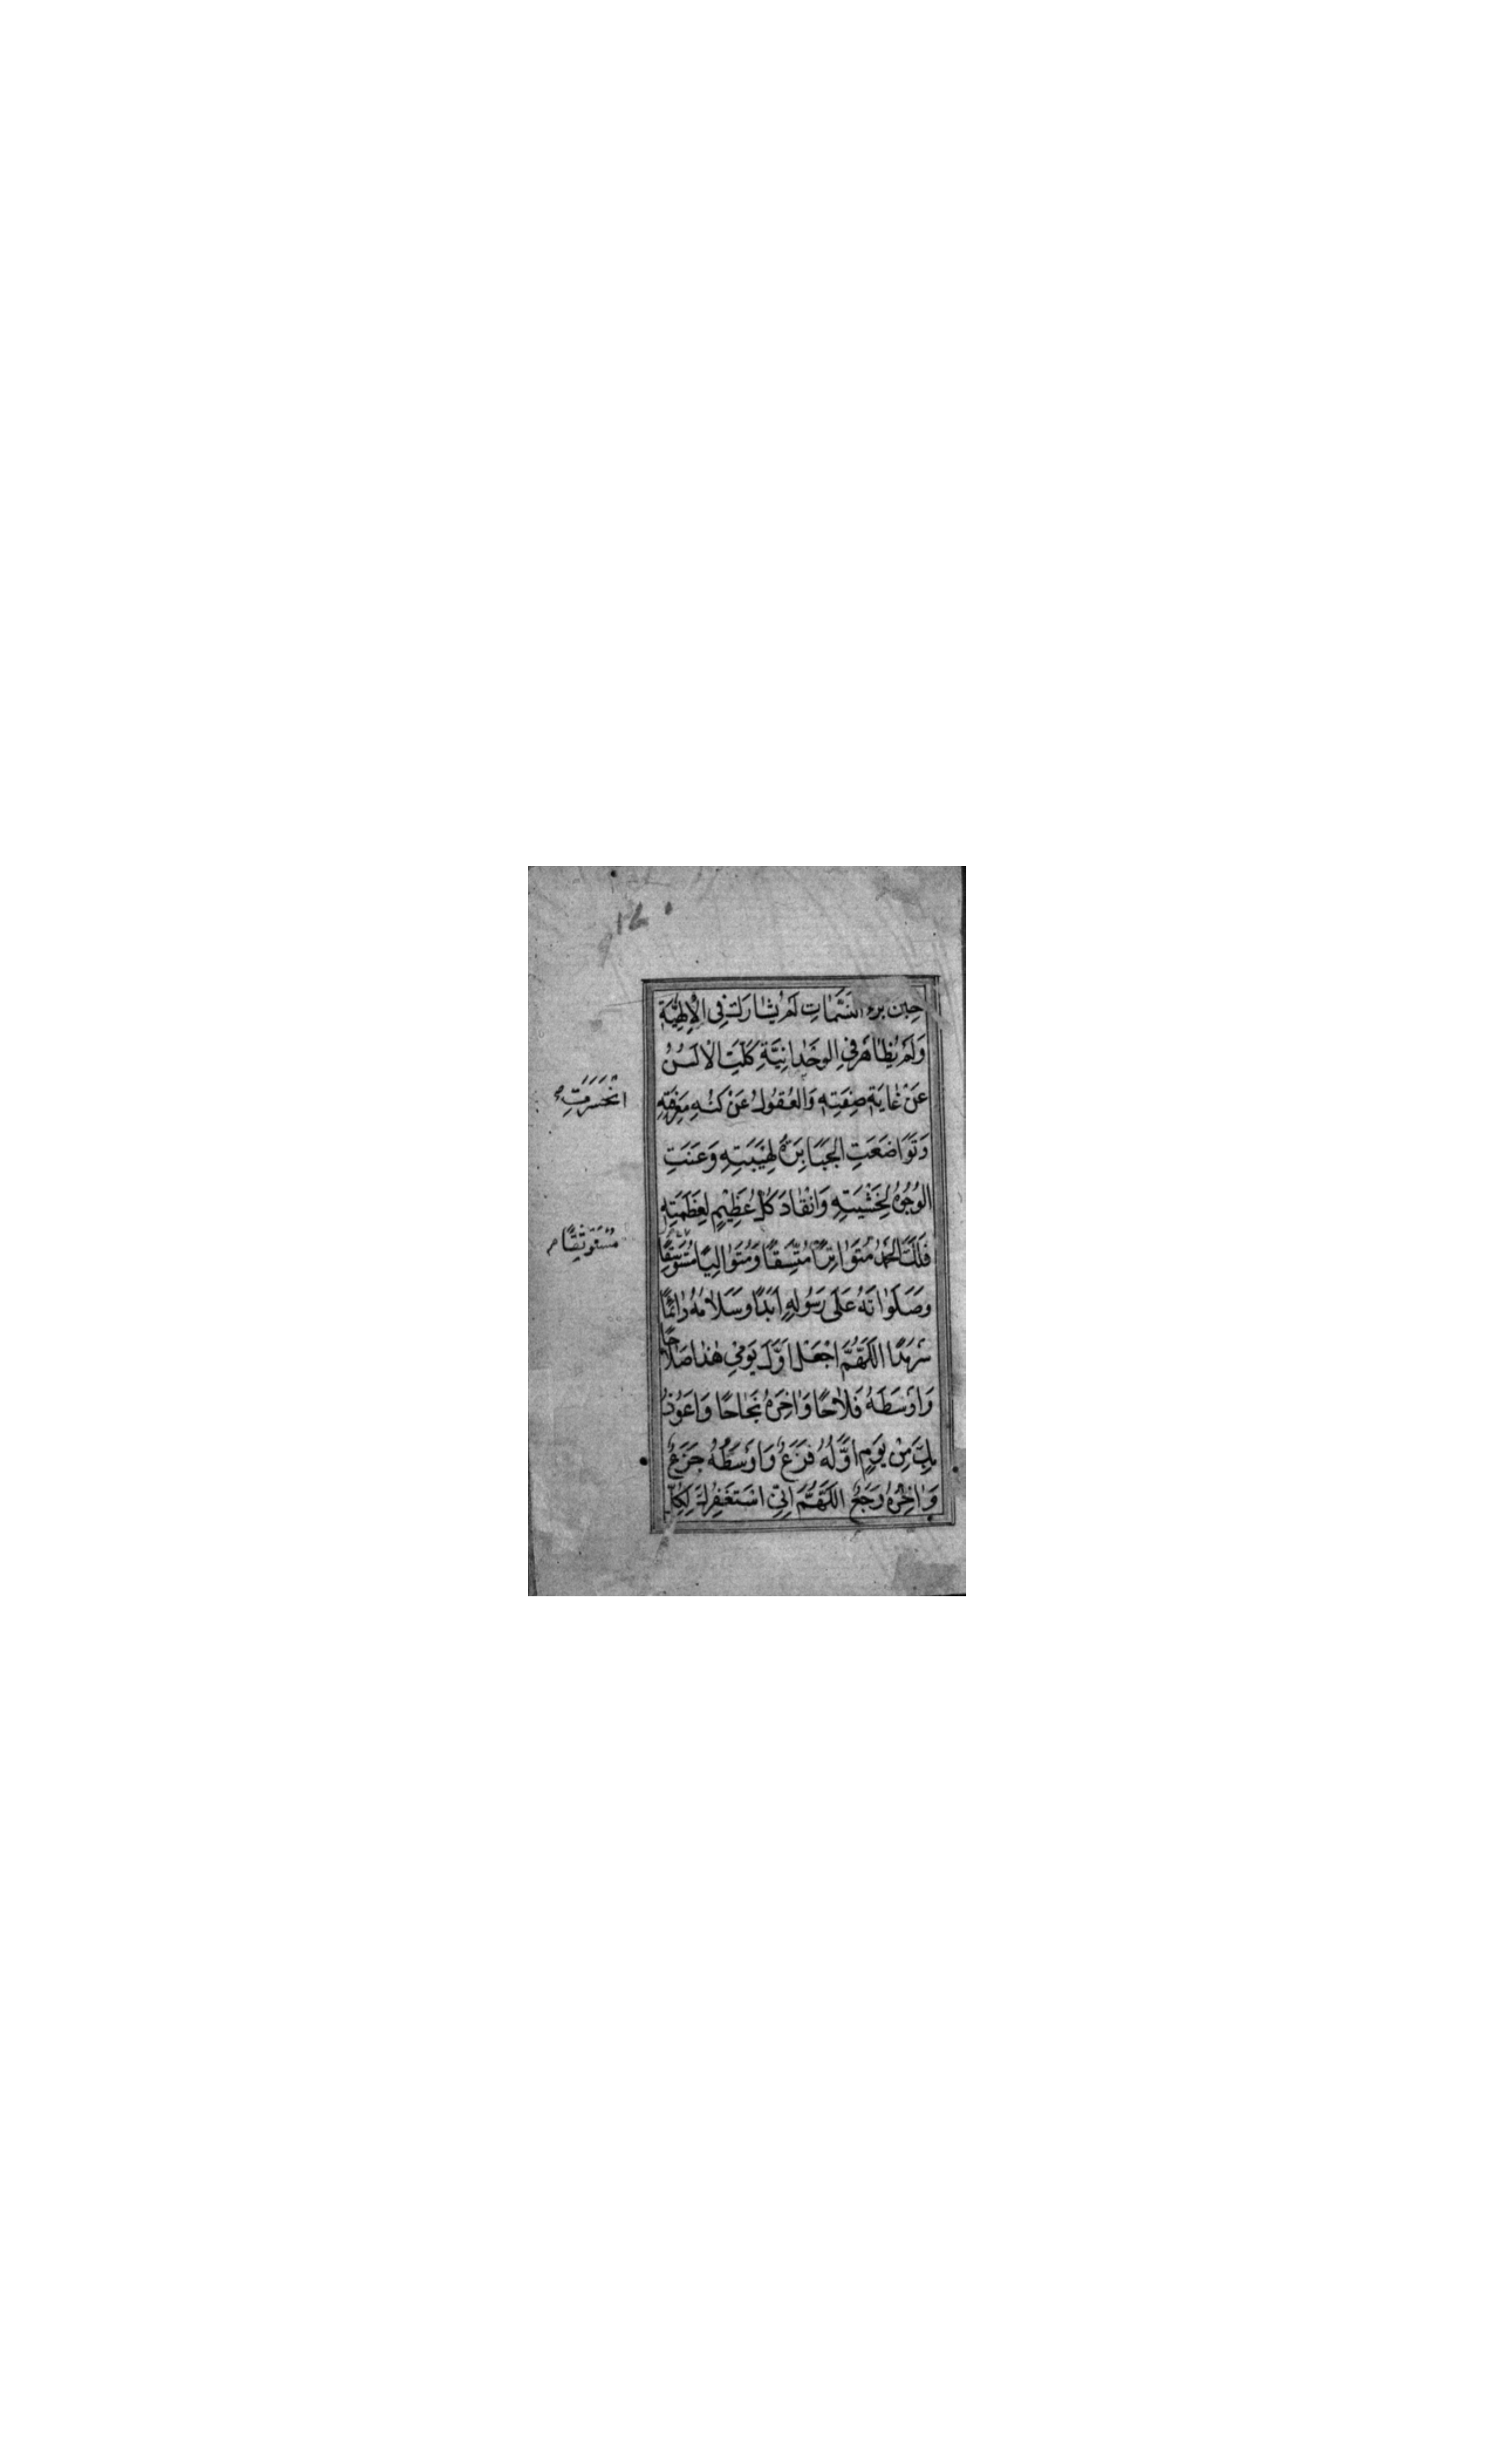 حِينَ برء النَّسَمَاتِ لَمْ يُشَارَكْ فِي الْاِلٰهِيَّةِ
وَلَمْ يُظَاهَرْ فِي الْوَحْدَانِيَّةِ كَلَّتِ الْاَلْسُنُ
عَنْ غَايَةِ صِفَتِهِ وَالْعُقُولُ عَنْ كُنْهِ مَعْرِفَتِهِ
وَتَوَاضَعَتِ الْجَبَابِرَةُ لِهَيْبَتِهِ وَعَنَتِ
الْوُجُوهُ لِخَشْيَتِهِ وَانْقَادَ كُلُّ عَظِيمٍ لِعَظَمَتِهِ
فَلَكَ الْحَمْدُ مُتَوَاتِرًا مُتَّسِقًا وَمُتَوَالِيًا مُسْتَوْسِقًا
وَصَلَوَاتُهُ عَلَى رَسُولِهِ اَبَدًا وَسَلَامُهُ دَائِمًا
سَرْمَدًا اَللّٰهُمَّ اجْعَلْ اَوَّلَ يَوْمِي هٰذَا صَلَاحًا
وَاَوْسَطَهُ فَلَاحًا وَاٰخِرَهُ نَجَاحًا وَاَعُوذُ
بِكَ مِنْ يَوْمٍ اَوَّلُهُ فَزَعٌ وَاَوْسَطُهُ جَزَعٌ
وَاٰخِرُهُ وَجَعٌ اَللّٰهُمَّ اِنِّي اَسْتَغْفِرُكَ لِكُلِّ
انْحَسَرَتِ
مُسْتَوْثِقًا